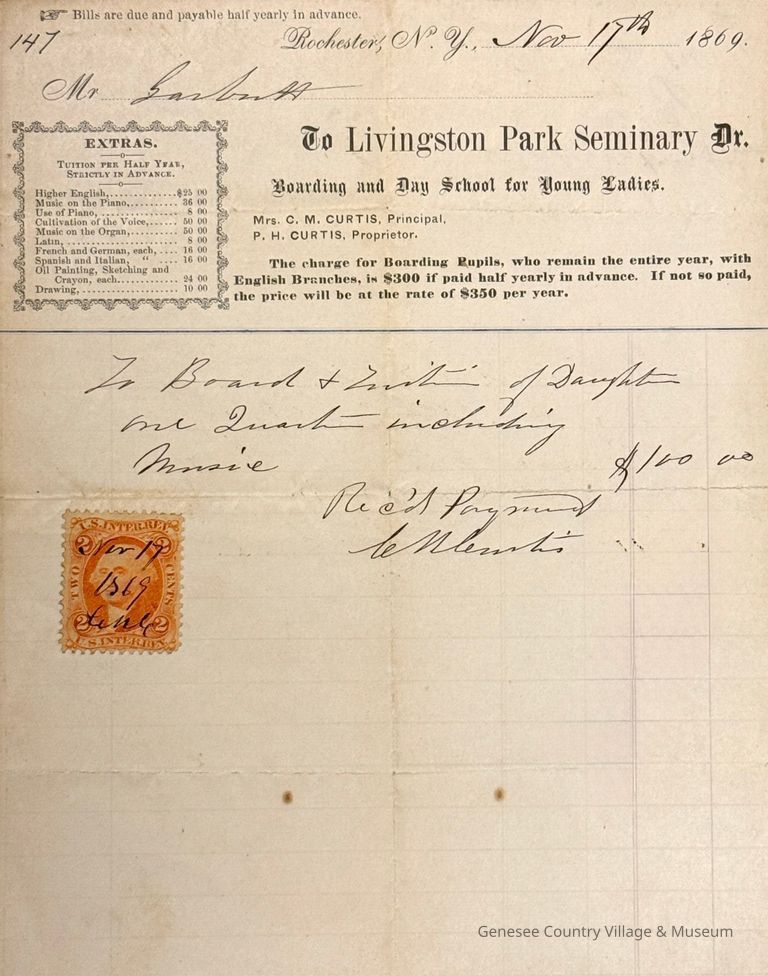 ☞ Bills are due and payable half yearly in advance.
147
Rochester, N. Y., Nov 17th 1869.
Mr Garbutt
EXTRAS.
TUITION PER HALF YEAR,
STRICTLY IN ADVANCE.
Higher English,.............$25 00
Music on the Piano,............ 36 00
Use of Piano,.................. 8 00
Cultivation of the Voice,...... 50 00
Music on the Organ,............ 50 00
Latin,......................... 8 00
French and German, each,.... 16 00
Spanish and Italian, " .... 16 00
Oil Painting, Sketching and
Crayon, each............... 24 00
Drawing,..................... 10 00
To Livingston Park Seminary Dr.
Boarding and Day School for Young Ladies.
Mrs. C. M. CURTIS, Principal,
P. H. CURTIS, Proprietor.
The charge for Boarding Pupils, who remain the entire year, with
English Branches, is $300 if paid half yearly in advance. If not so paid,
the price will be at the rate of $350 per year.
To Board & Tuition of Daughter
one Quarter including
Music $100 00
Rec'd Payment
C M Curtis
U.S. INTER. REV.
2 2
Nov 17
TWO CENTS
1869
2 2
U.S. INTER. REV.
Genesee Country Village & Museum